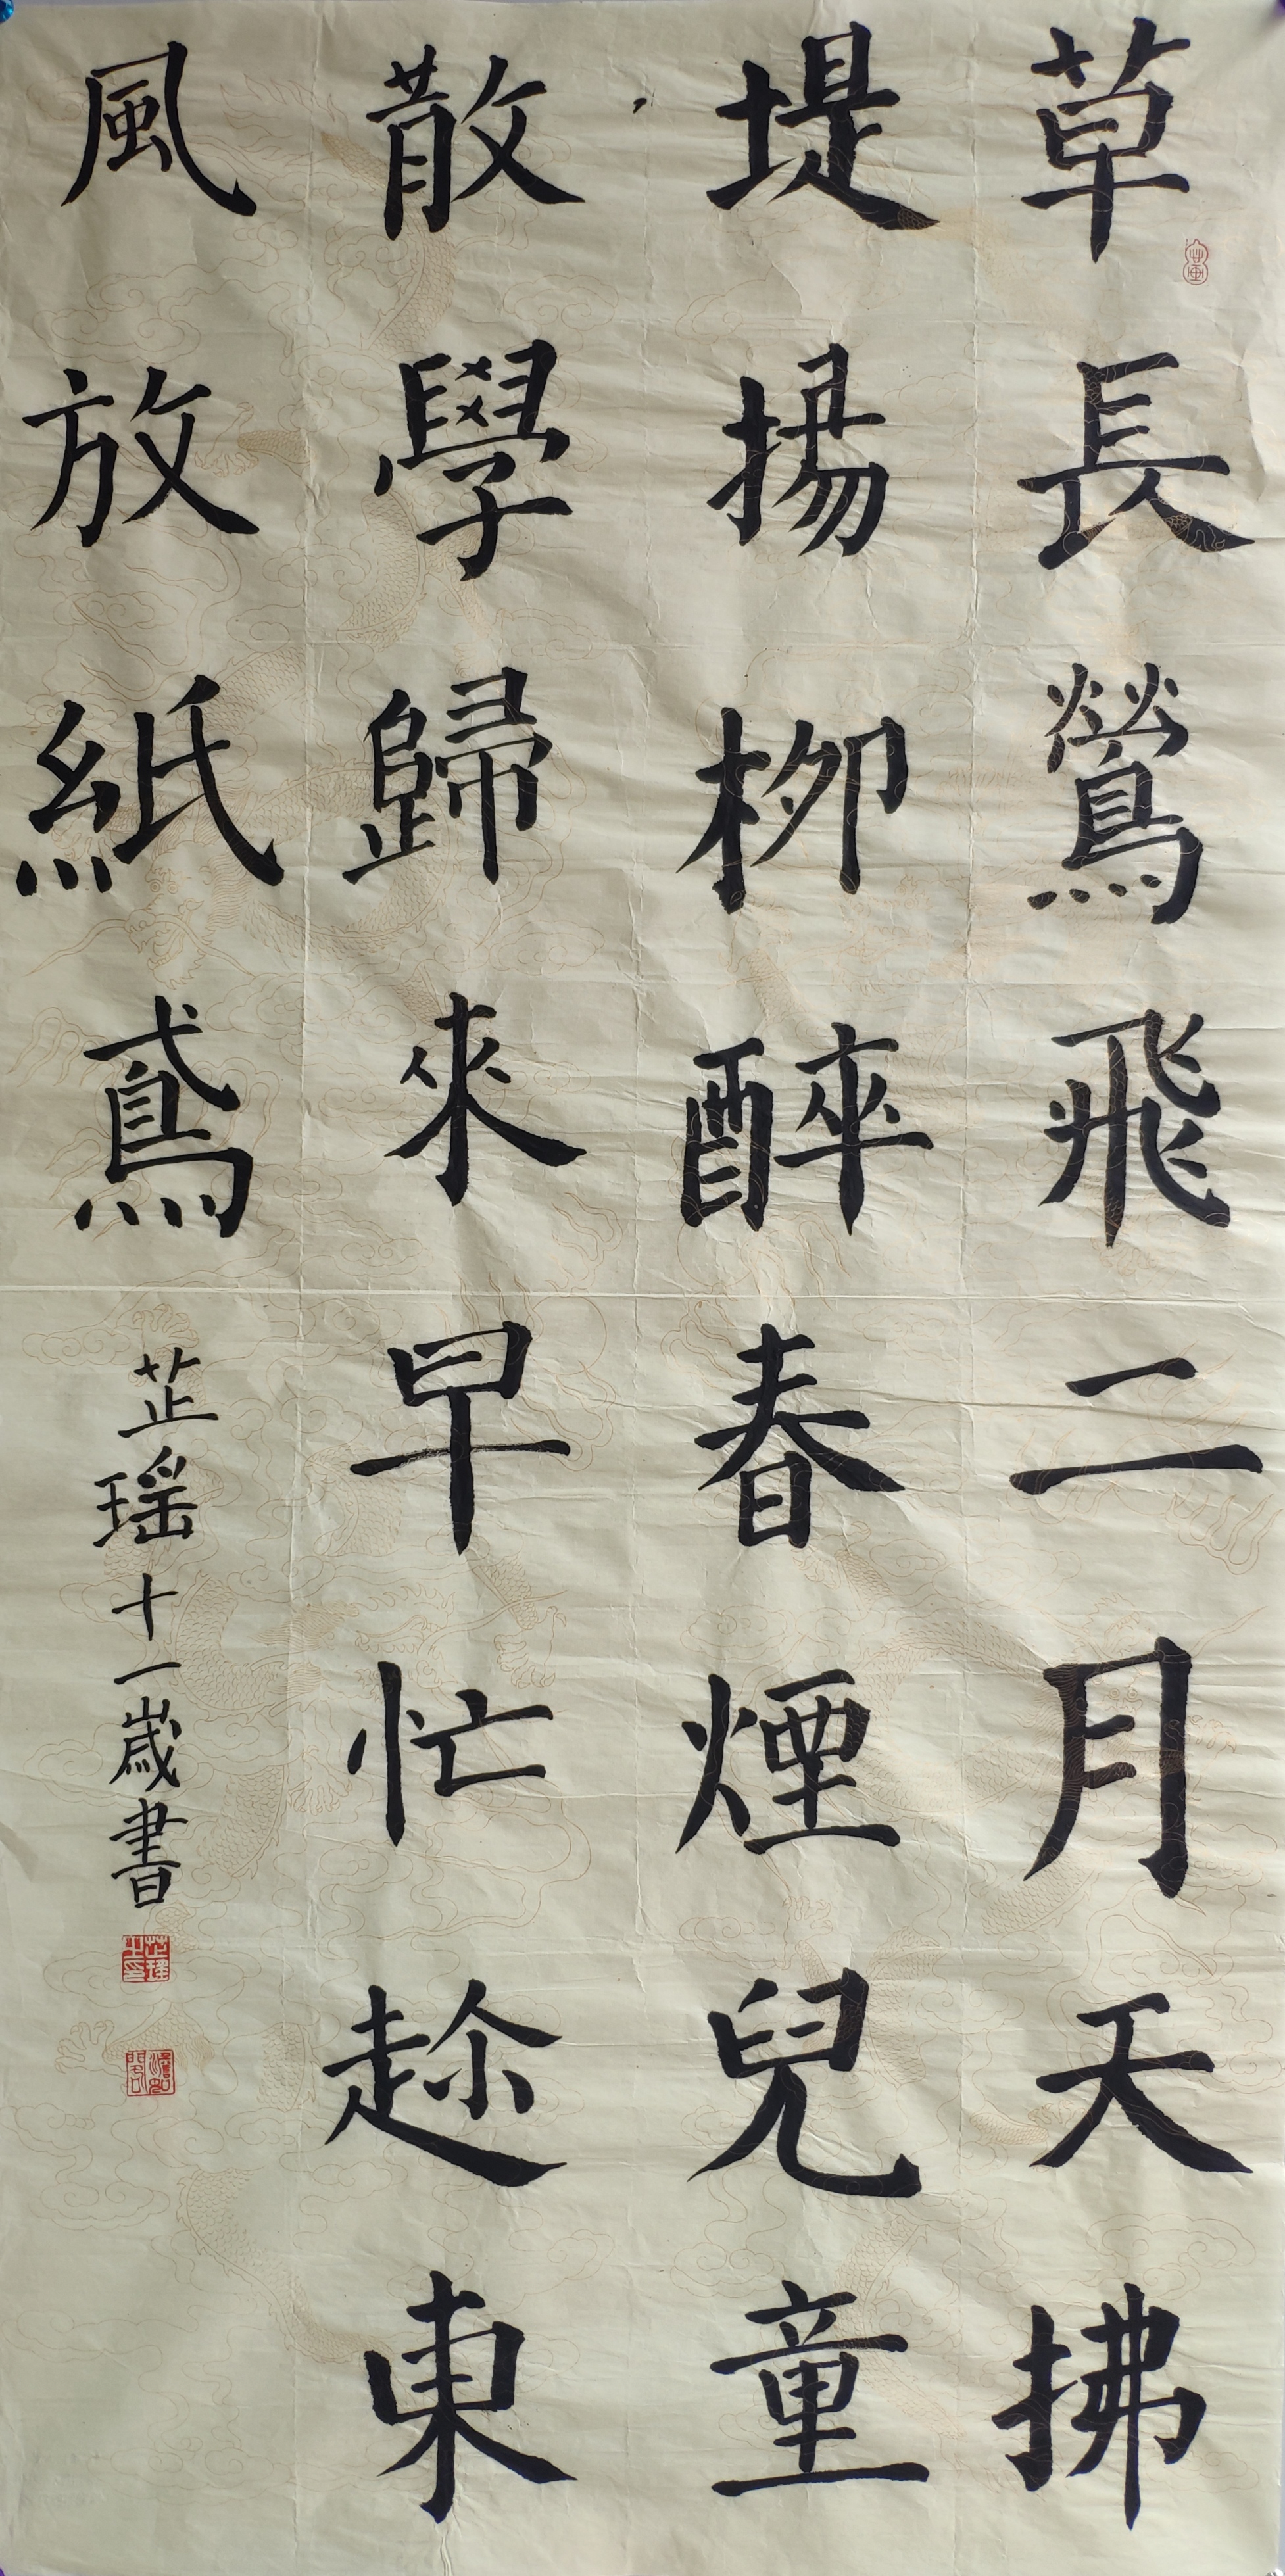 草長鶯飛二月天拂
堤揚柳醉春煙兒童
散學歸來早忙趁東
風放紙鳶
芷瑶十一歲書